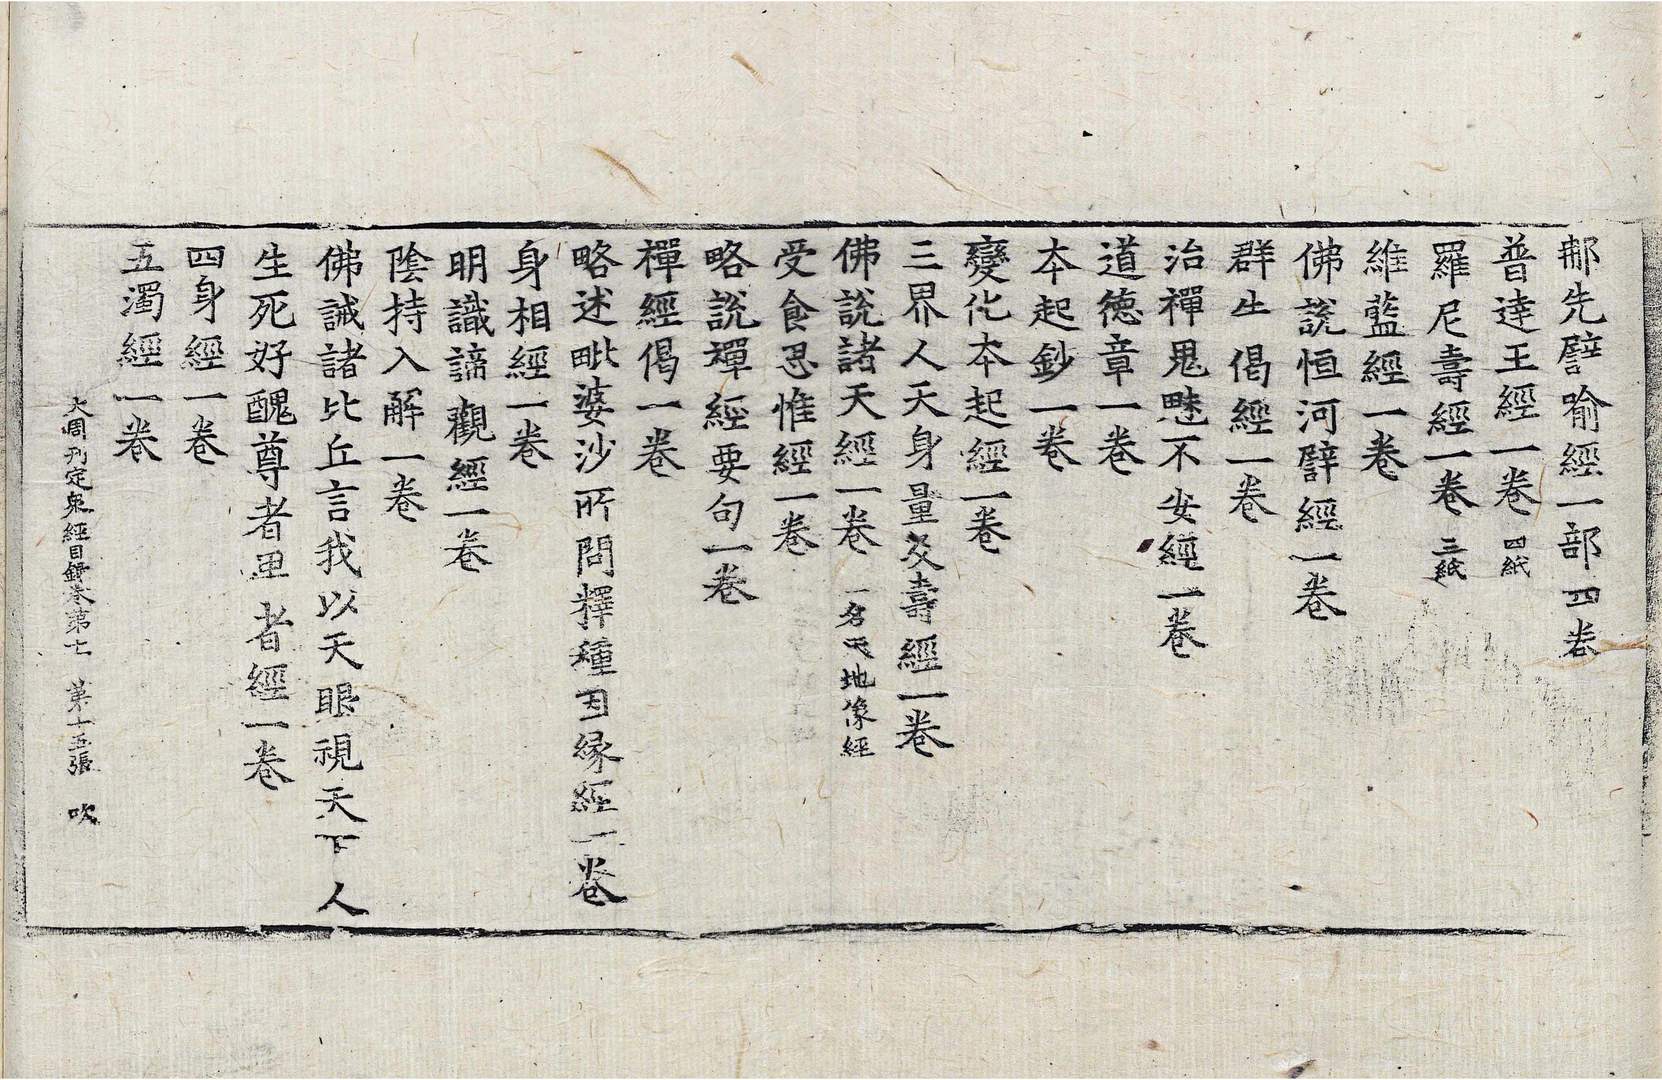 那先譬喻經一部四卷
普達王經一卷 四紙
羅尼壽經一卷 三紙
維藍經一卷
佛說恒河譬經一卷
群生偈經一卷
治禪鬼魅不安經一卷
道德章一卷
本起鈔一卷
變化本起經一卷
三界人天身量及壽經一卷
佛說諸天經一卷 一名天地像經
受食思惟經一卷
略說禪經要句一卷
禪經偈一卷
略述毗婆沙所問釋種因緣經一卷
身相經一卷
明識諦觀經一卷
陰持入解一卷
佛誡諸比丘言我以天眼視天下人
生死好醜尊者卑者經一卷
四身經一卷
五濁經一卷
大周刊定眾經目錄卷第七 第十五張 吹